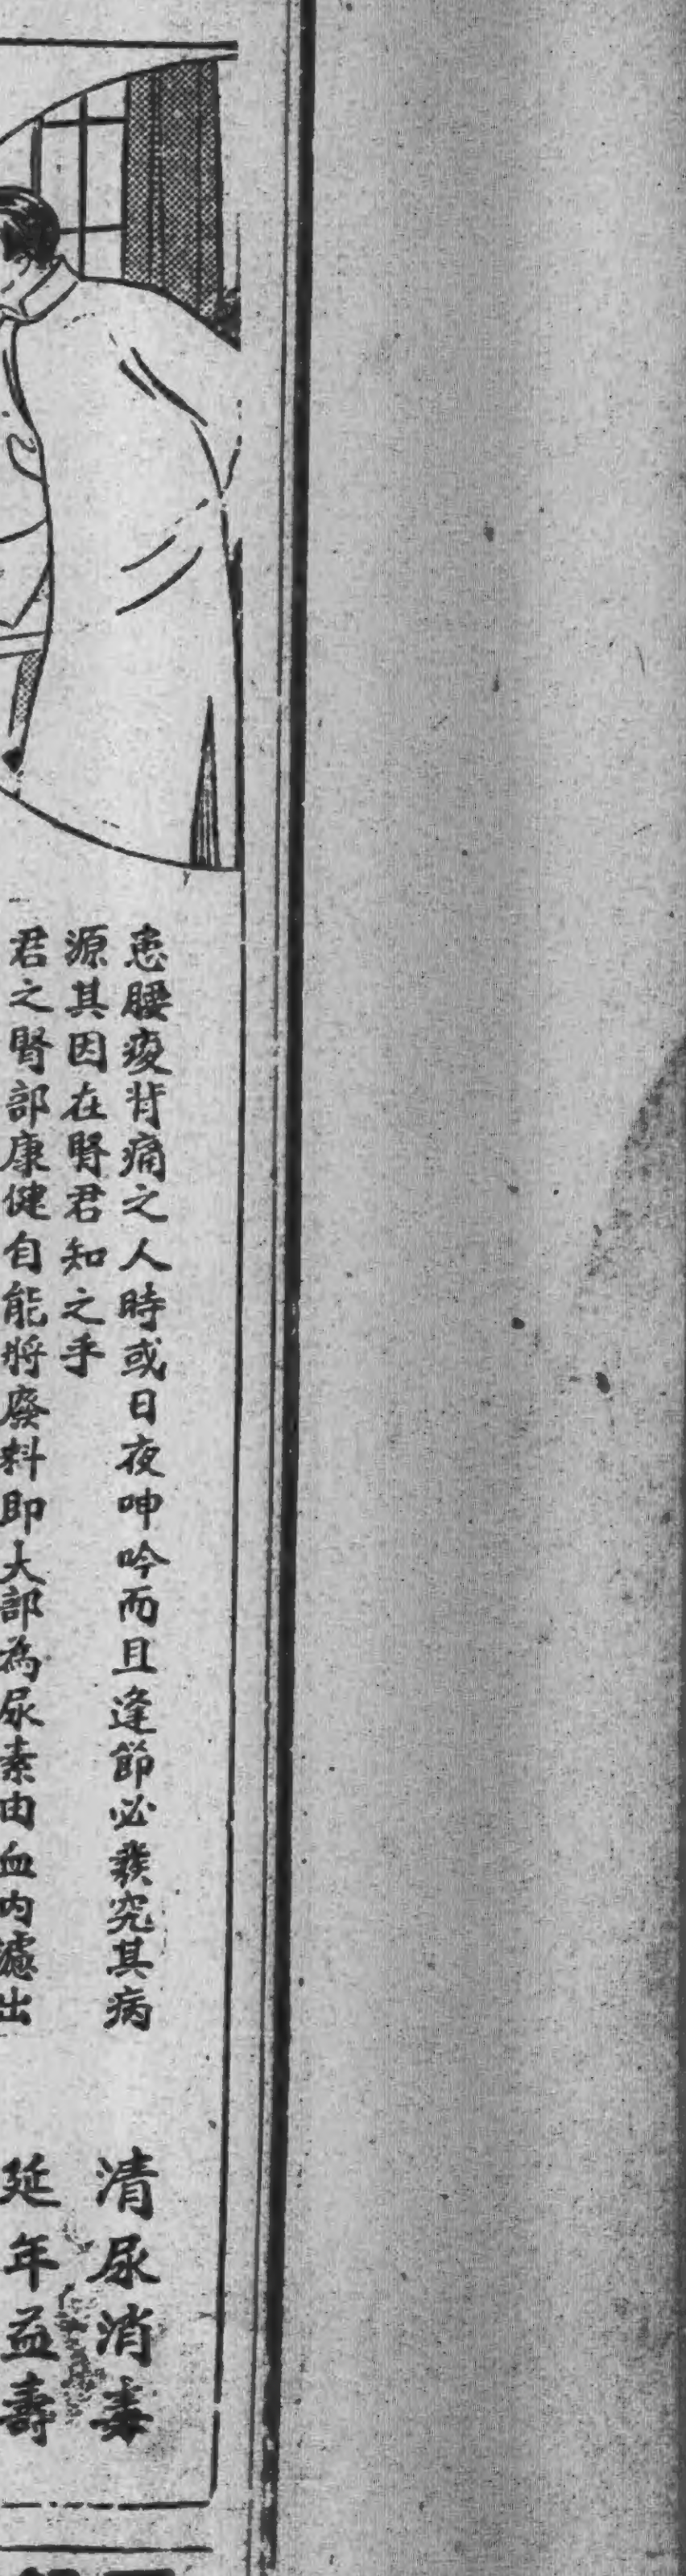 患腰痠背痛之人時或日夜呻吟而且逢節必發究其病
源其因在腎君知之乎
君之腎部康健自能將廢料即大部為尿素由血內濾出
清尿消毒
延年益壽